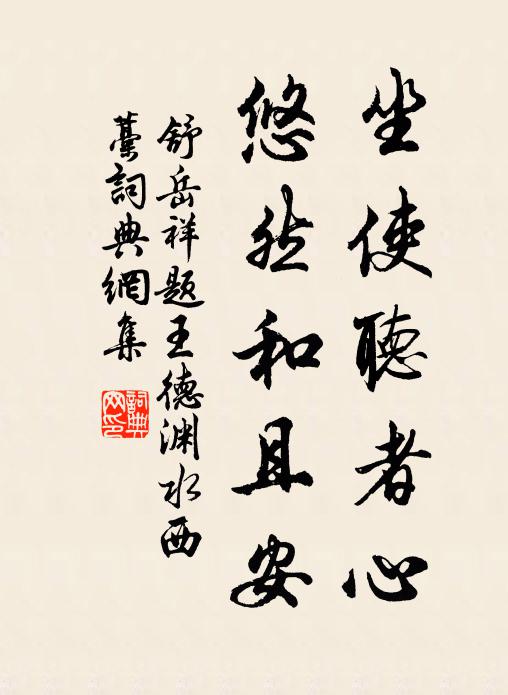 坐使聽者心
悠然和且安
舒岳祥題王德渊水西
藁詞典網集
詞典
网印